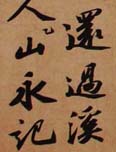 還過溪
人山永記